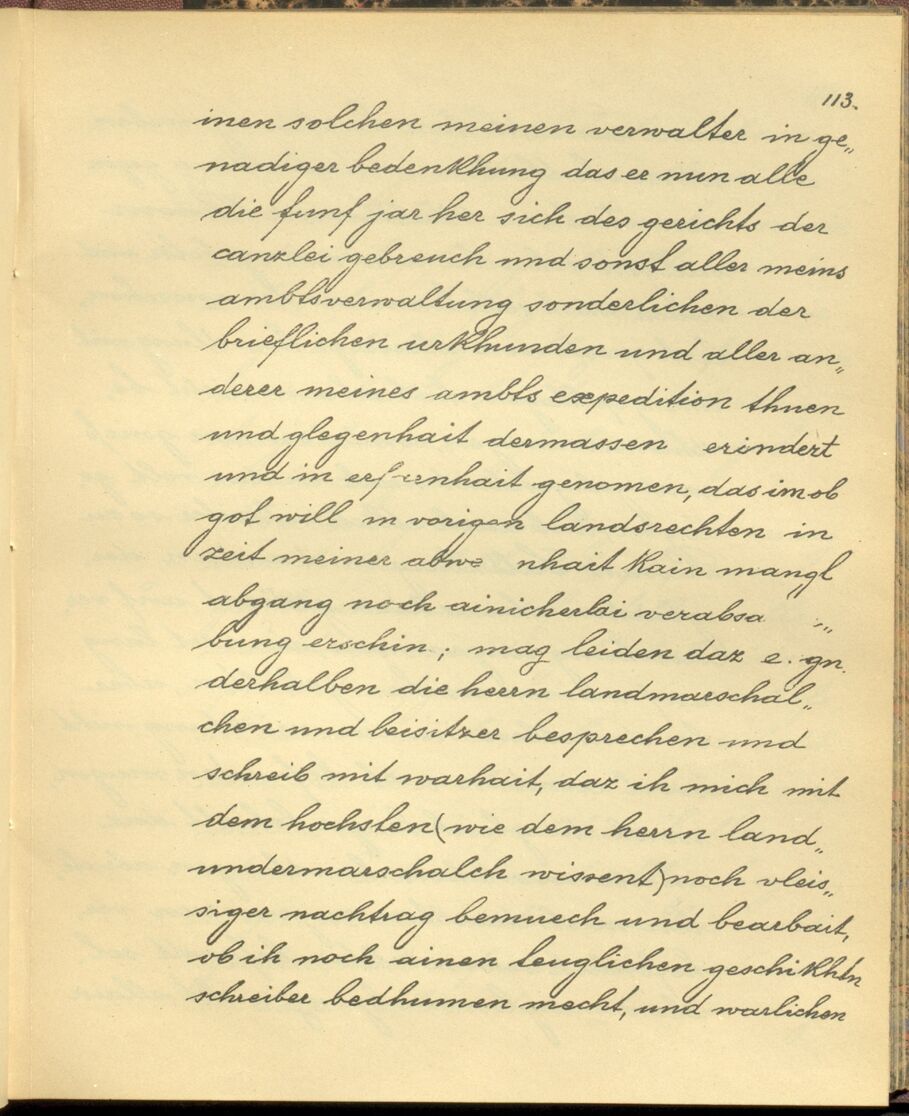 113.
inen solchen meinen verwalter in ge„
nadiger bedenkhung das er nun alle
die funf jar her sich des gerichts der
canzlei gebreuch und sonst aller meins
ambtsverwaltung sonderlichen der
brieflichen urkhunden und aller an„
derer meines ambts expedition thuen
und glegenhait dermassen erindert
und in genomen, das im ob
got will in vorigen landsrechten in
zeit meiner abwe nhait kain mangl
abgang noch ainicherlai verabsa „
bung erschin; mag leiden daz e. gn.
derhalben die herrn landmarschal„
chen und beisitzer besprechen und
schreib mit warhait, daz ih mich mit
dem hochsten (wie dem herrn land„
undermarschalch wissent) noch vleis„
siger nachtrag bemuech und bearbait,
ob ih noch ainen teuglichen geschikhtn
schreiber bedhumen mecht, und warlichen